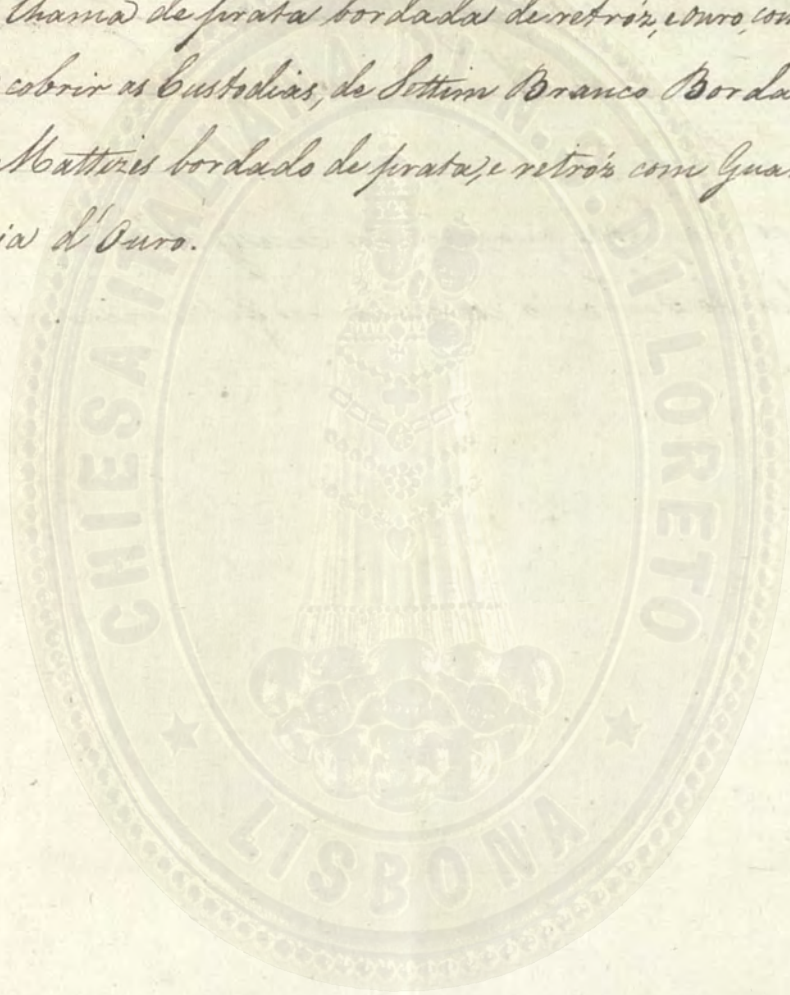 Chama de prata bordada de retróz, e ouro, com
cobrir as Custodias, de Settim Branco Borda
Mattizes bordado de prata, e retróz com Gua
ia d'Ouro.
CHIESA ITALIANA DI N. S. DI LORETO
LISBONA